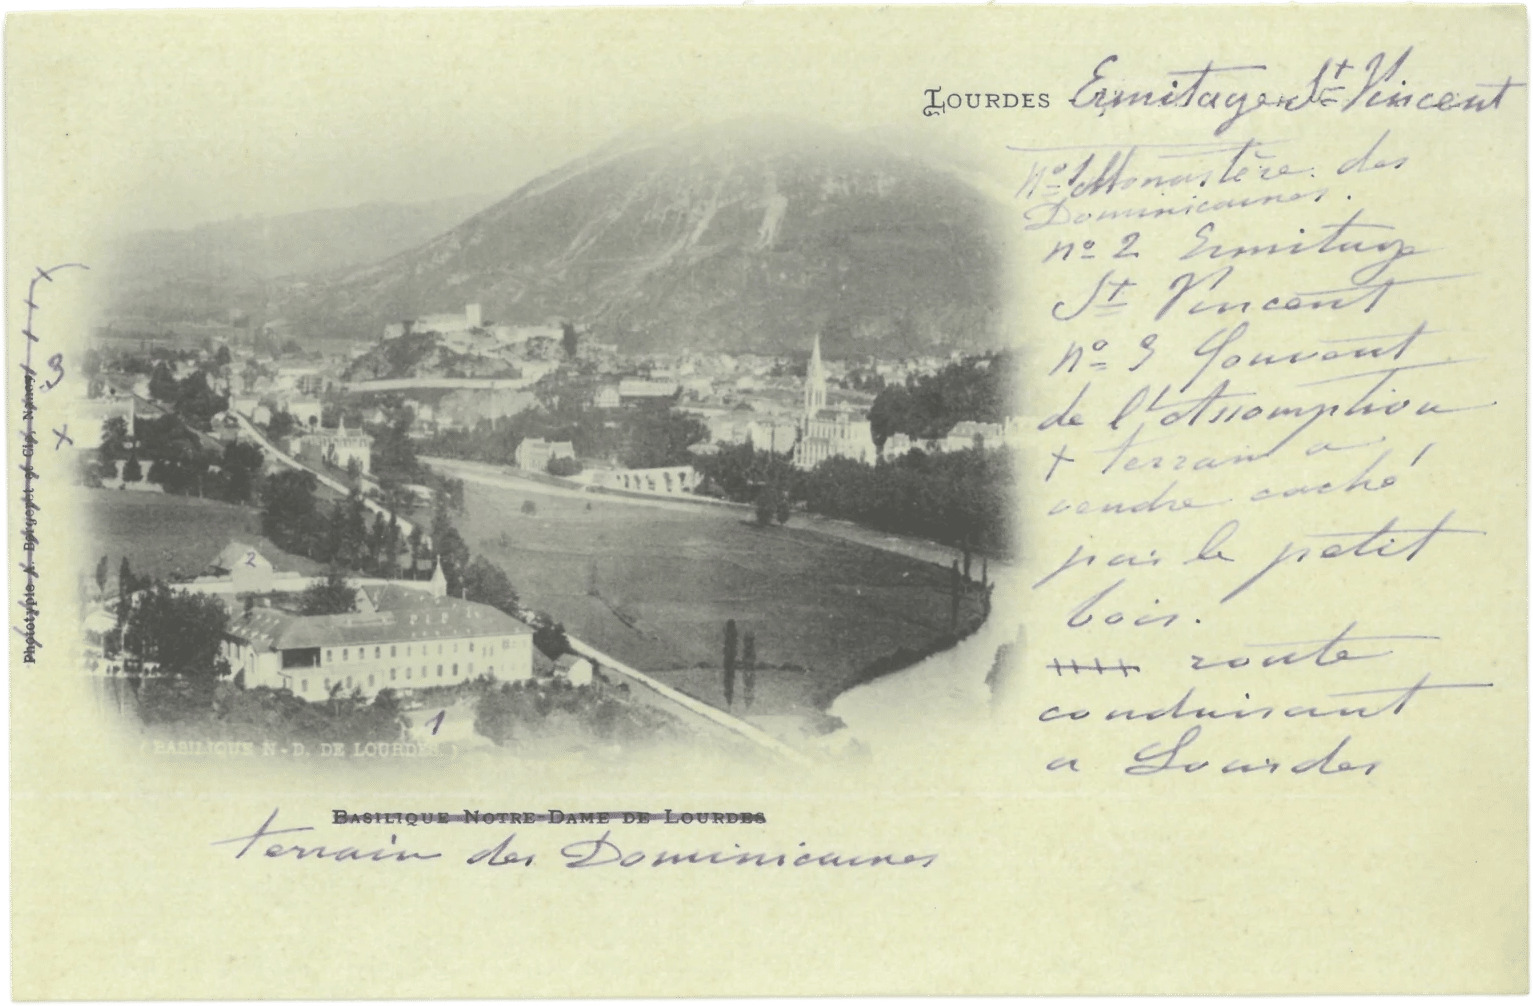 LOURDES Ermitage St Vincent
no 1 Monastère des
Dominicaines.
no 2 Ermitage
St Vincent
no 3 Couvent
de l'Assomption
+ terrain a
vendre caché
par le petit
bois.
++++ route
conduisant
a Lourdes
3
x
2
1
BASILIQUE N.-D. DE LOURDES
BASILIQUE NOTRE-DAME DE LOURDES
terrain des Dominicaines